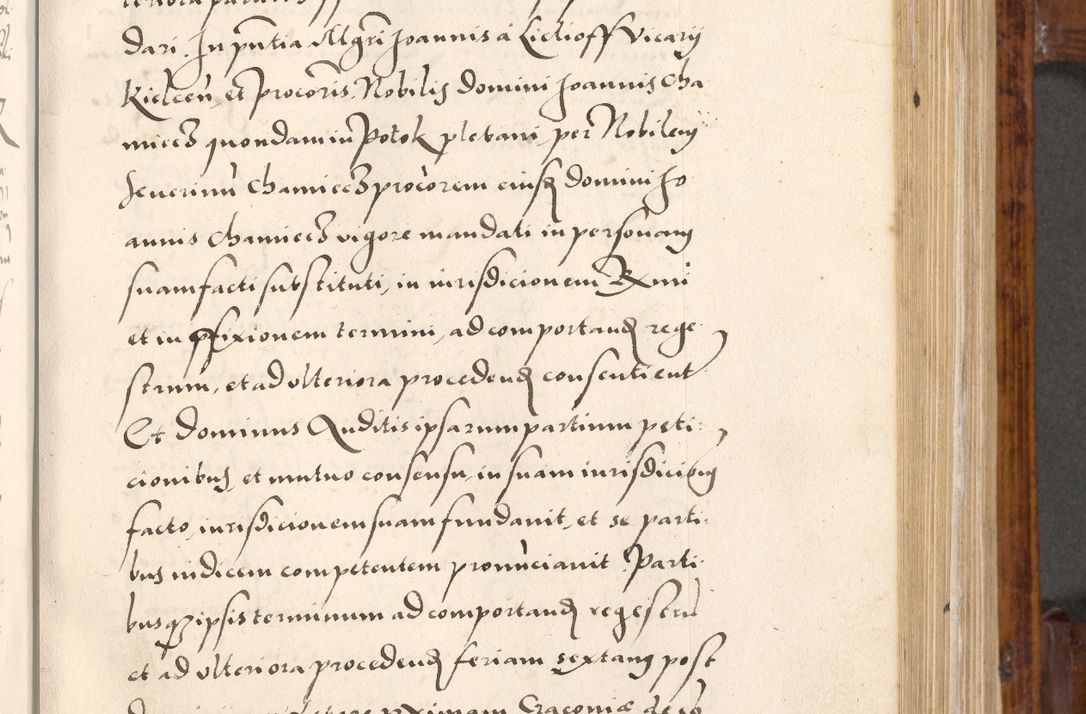 dari. In pntia Mgri Joannis à Lichoff Vicarij
Kielcen et Procoris Nobilis domini Joannis Cha
miecz quondam in Potok plebani per Nobilem
Seuerinu Chamiecz procorem eiusq domini Jo
annis Chamiecz vigore mandati in personam
suam facti substituti, in iurisdicionem Rxmi
et in pfixionem termini, ad comportand rege
strum, et ad vlteriora procedend consentient
Et dominus Auditis ipsarum partium peti:
cionibus, et mutuo consensu, in suam iurisdicionem
facto, iurisdicionem suam fundauit, et se parti:
bus iudicem competentem pronunciauit. Parti:
busq ipsis terminum ad comportand regestru
et ad vlteriora procedend feriam sextam post